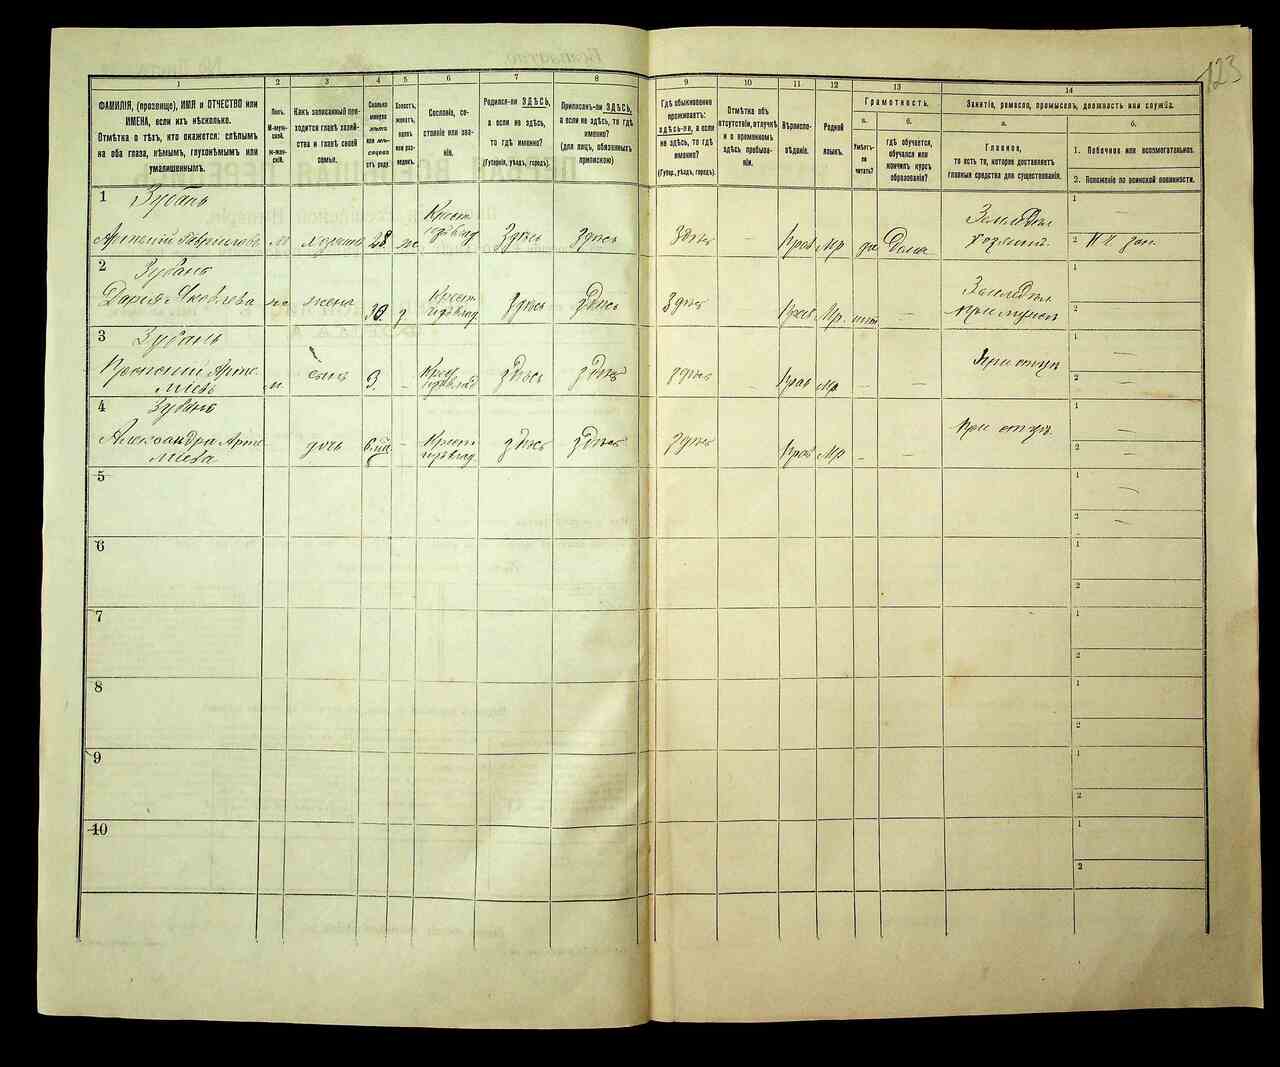 123
1
ФАМИЛІЯ, (прозвище), ИМЯ и ОТЧЕСТВО или ИМЕНА, если ихъ нѣсколько.
Отмѣтка о тѣхъ, кто окажется: слѣпымъ на оба глаза, нѣмымъ, глухонѣмымъ или умалишеннымъ.
2
Полъ.
М-мужской.
Ж-женскій.
3
Какъ записанный приходится главѣ хозяйства и главѣ своей семьи.
4
Сколько минуло лѣтъ или мѣсяцевъ отъ роду.
5
Холостъ, женатъ, вдовъ или разведенъ.
6
Сословіе, состояніе или званіе.
7
Родился-ли ЗДѢСЬ, а если не здѣсь, то гдѣ именно?
(Губернія, уѣздъ, городъ).
8
Приписанъ-ли ЗДѢСЬ, а если не здѣсь, то гдѣ именно?
(для лицъ, обязанныхъ припискою)
9
Гдѣ обыкновенно проживаетъ: здѣсь-ли, а если не здѣсь, то гдѣ именно?
(Губер., уѣздъ, городъ).
10
Отмѣтка объ отсутствіи, отлучкѣ и о временномъ здѣсь пребываніи.
11
Вѣроисповѣданіе.
12
Родной языкъ.
13
Грамотность.
а.
Умѣетъ-ли читать?
б.
гдѣ обучается, обучался или кончилъ курсъ образованія?
14
Занятіе, ремесло, промыселъ, должность или служба.
а.
Главное,
то есть то, которое доставляетъ главныя средства для существованія.
б.
1. Побочное или вспомогательное.
2. Положеніе по воинской повинности.
1 Зубань
Артемій Гавриловъ м хозяинъ 28 ж Крест Здѣсь Здѣсь Здѣсь — Прав Мр да Дома Земледѣл хозяинъ
1 —
2
2 Зубань
Дарія Яковлева ж жена 30 з Крест здѣсь здѣсь здѣсь — Прав Мр — Земледѣл
1 —
2 —
3 Зубань
Артеміевъ м. сынъ 3 — Крест здѣсь здѣсь здѣсь — Прав Мр — — При отцѣ
1 —
2 —
4 Зубань
Александра Артеміева дочь — Крест здѣсь здѣсь здѣсь Прав Мр — — При отцѣ
1 —
2 —
5
1 —
2 —
6
1
2
7
1
2
8
1
2
9
1
2
10
1
2